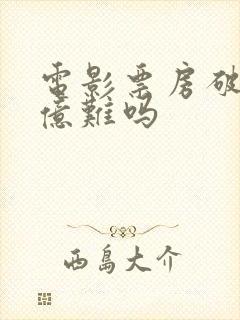 電影票房破
億難吗
西島大介